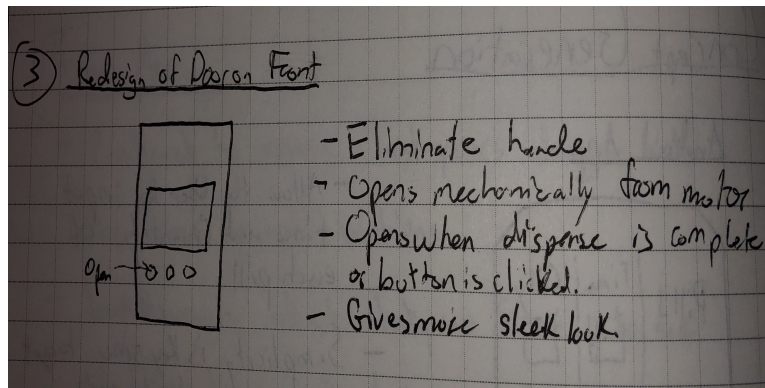 ③ Redesign of Door on Front
- Eliminate hancle
- Opens mechanically from motor
- Opens when dispense is complete
or button is clicked.
Open
- Gives more sleek look